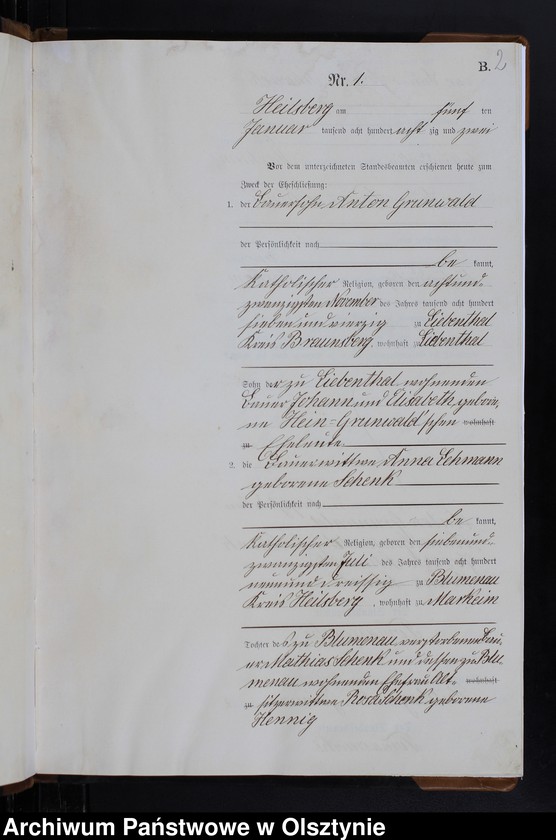 B. 2
Nr. 1.
Heilsberg am fünf ten
Januar tausend acht hundert acht zig und zwei
Vor dem unterzeichneten Standesbeamten erschienen heute zum
Zweck der Eheschließung:
1. der Bauersohn Anton Grunwald
der Persönlichkeit nach
be kannt,
Katholischer Religion, geboren den achtund-
zwanzigsten November des Jahres tausend acht hundert
sieben und vierzig zu Liebenthal
Kreis Braunsberg wohnhaft zu Liebenthal
Sohn der zu Liebenthal wohnenden
Bauer Johann und Elisabeth gebore-
ne Hein-Grunwald'schen wohnhaft
zu Eheleute
2. die Bauerwittwe Anna Lehmann
geborene Schenk
der Persönlichkeit nach
be kannt,
Katholischer Religion, geboren den siebenund-
zwanzigsten Juli des Jahres tausend acht hundert
neunund dreissig zu Blumenau
Kreis Heilsberg, wohnhaft zu Markeim
Tochter des zu Blumenau verstorbenen Bau-
er Mathias Schenk und dessen zu Blu-
menau wohnenden Ehefrau Alt- wohnhaft
zu sitzerwittwe Rosa Schenk geborene
Hennig
Archiwum Państwowe w Olsztynie